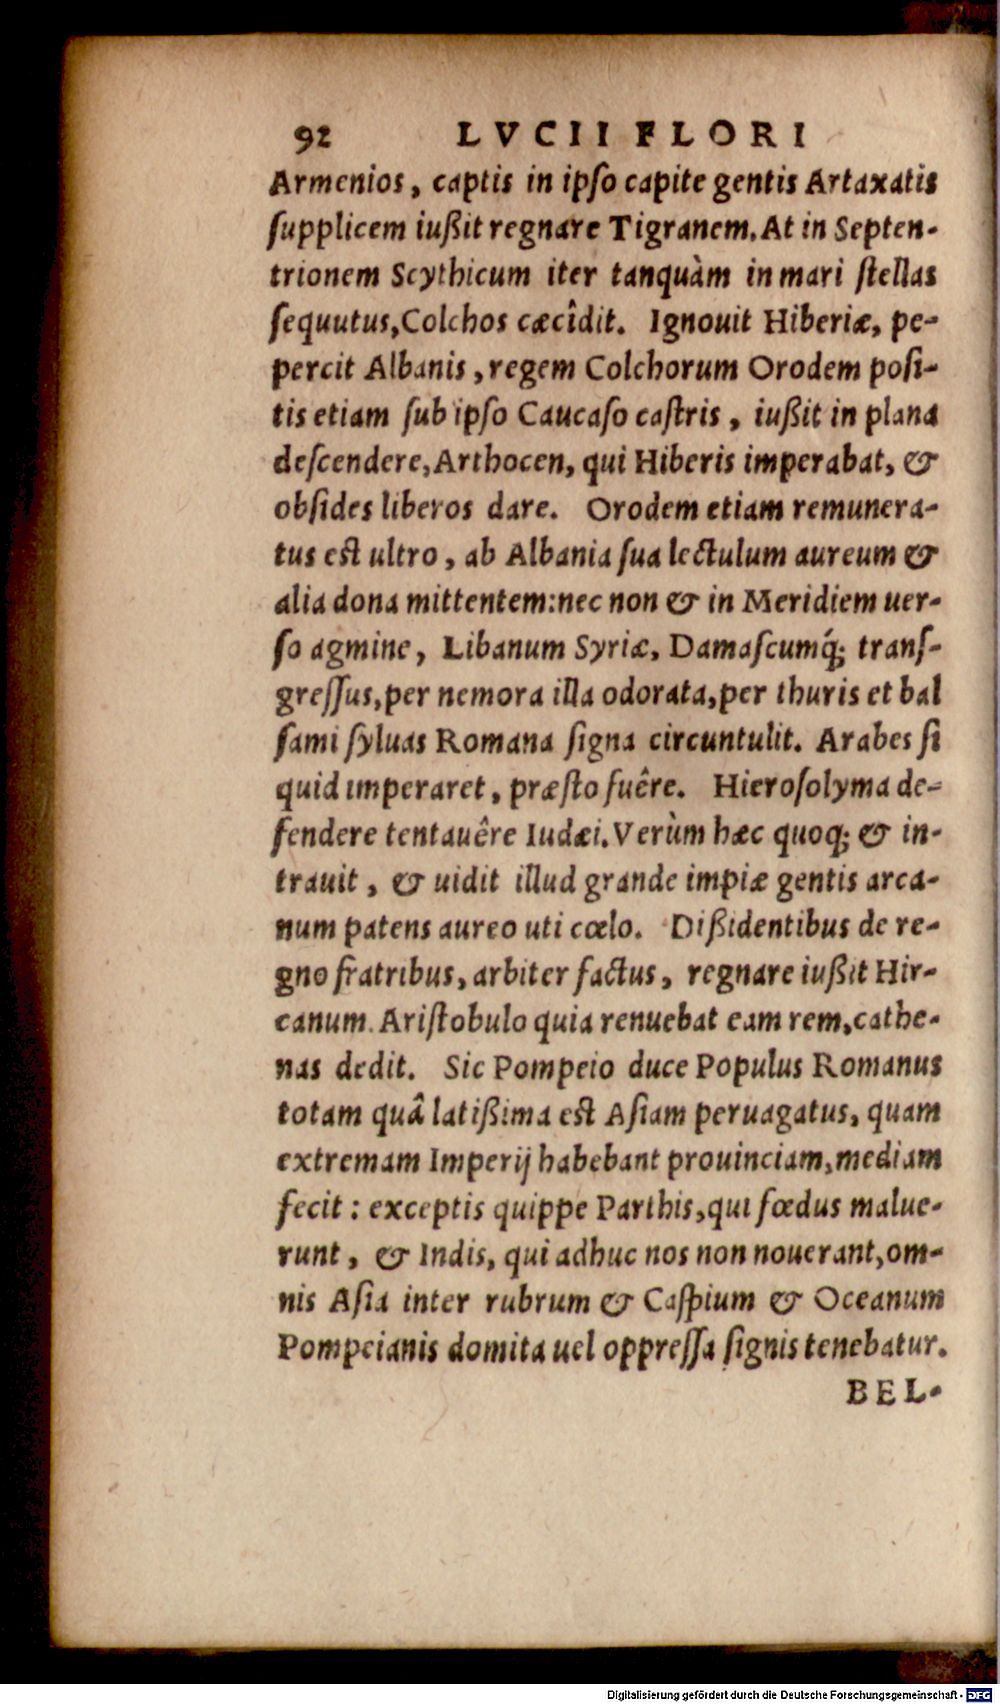 92 LVCII FLORI
Armenios, captis in ipſo capite gentis Artaxatis
ſupplicem iußit regnare Tigranem. At in Septen-
trionem Scythicum iter tanquàm in mari ſtellas
ſequutus, Colchos cæcîdit. Ignouit Hiberiæ, pe-
percit Albanis, regem Colchorum Orodem poſi-
tis etiam ſub ipſo Caucaſo caſtris, iußit in plana
deſcendere, Arthocen, qui Hiberis imperabat, &
obſides liberos dare. Orodem etiam remunera-
tus est ultro, ab Albania ſua lectulum aureum &
alia dona mittentem: nec non & in Meridiem uer-
ſo agmine, Libanum Syriæ, Damaſcumq́; tranſ-
greſſus, per nemora illa odorata, per thuris et bal
ſami ſyluas Romana ſigna circuntulit. Arabes ſi
quid imperaret, præſto fuêre. Hieroſolyma de-
fendere tentauêre Iudæi. Verùm hæc quoq; & in-
trauit, & uidit illud grande impiæ gentis arca-
num patens aureo uti cœlo. Dißidentibus de re-
gno fratribus, arbiter factus, regnare iußit Hir-
canum. Ariſtobulo quia renuebat eam rem, cathe-
nas dedit. Sic Pompeio duce Populus Romanus
totam quâ latißima est Aſiam peruagatus, quam
extremam Imperij habebant prouinciam, mediam
fecit: exceptis quippe Parthis, qui fœdus malue-
runt, & Indis, qui adhuc nos non nouerant, om-
nis Aſia inter rubrum & Caſpium & Oceanum
Pompeianis domita uel oppreſſa ſignis tenebatur.
BEL-
Digitalisierung gefördert durch die Deutsche Forschungsgemeinschaft - DFG